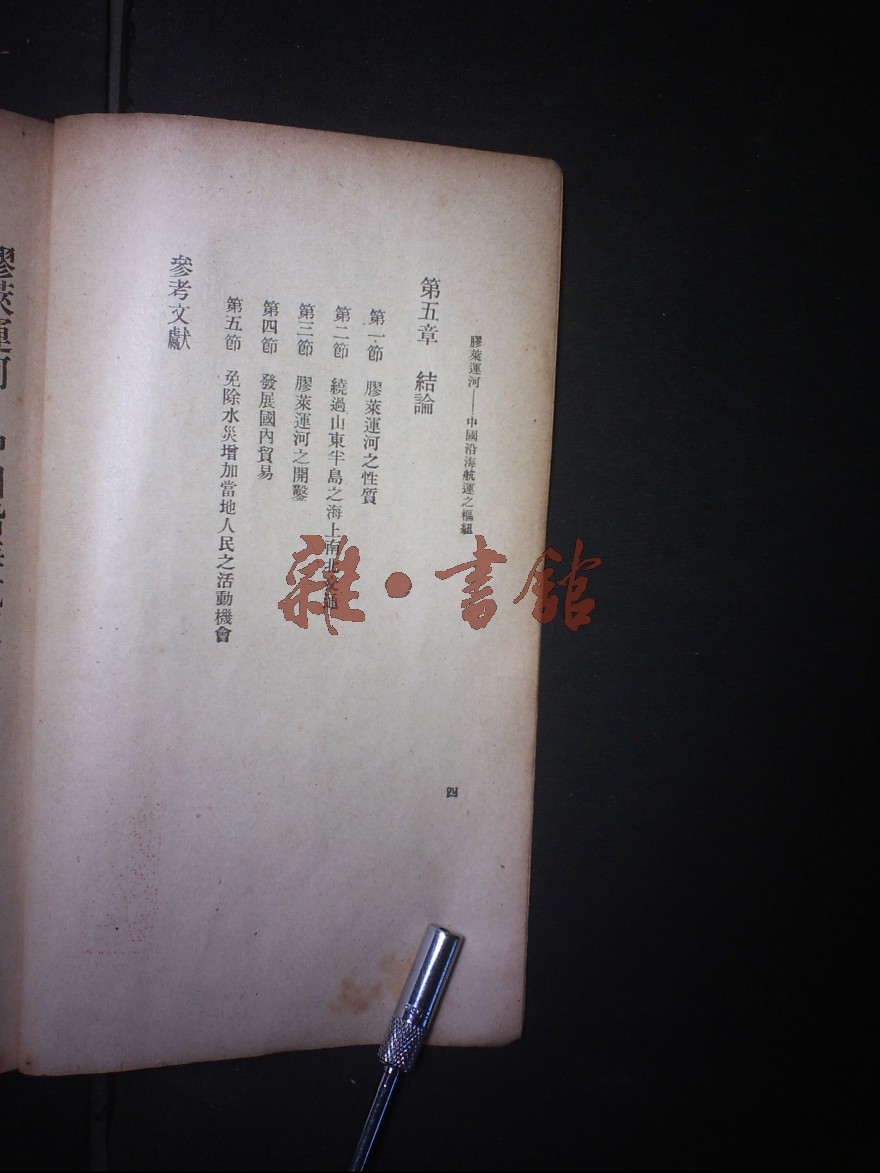 膠萊運河——中國沿海航運之樞紐
第五章　結論
第一節　膠萊運河之性質
第二節　繞過山東半島之海上南北交通
第三節　膠萊運河之開鑿
第四節　發展國內貿易
第五節　免除水災增加當地人民之活動機會
參考文獻
四
膠萊運河
雜·書館